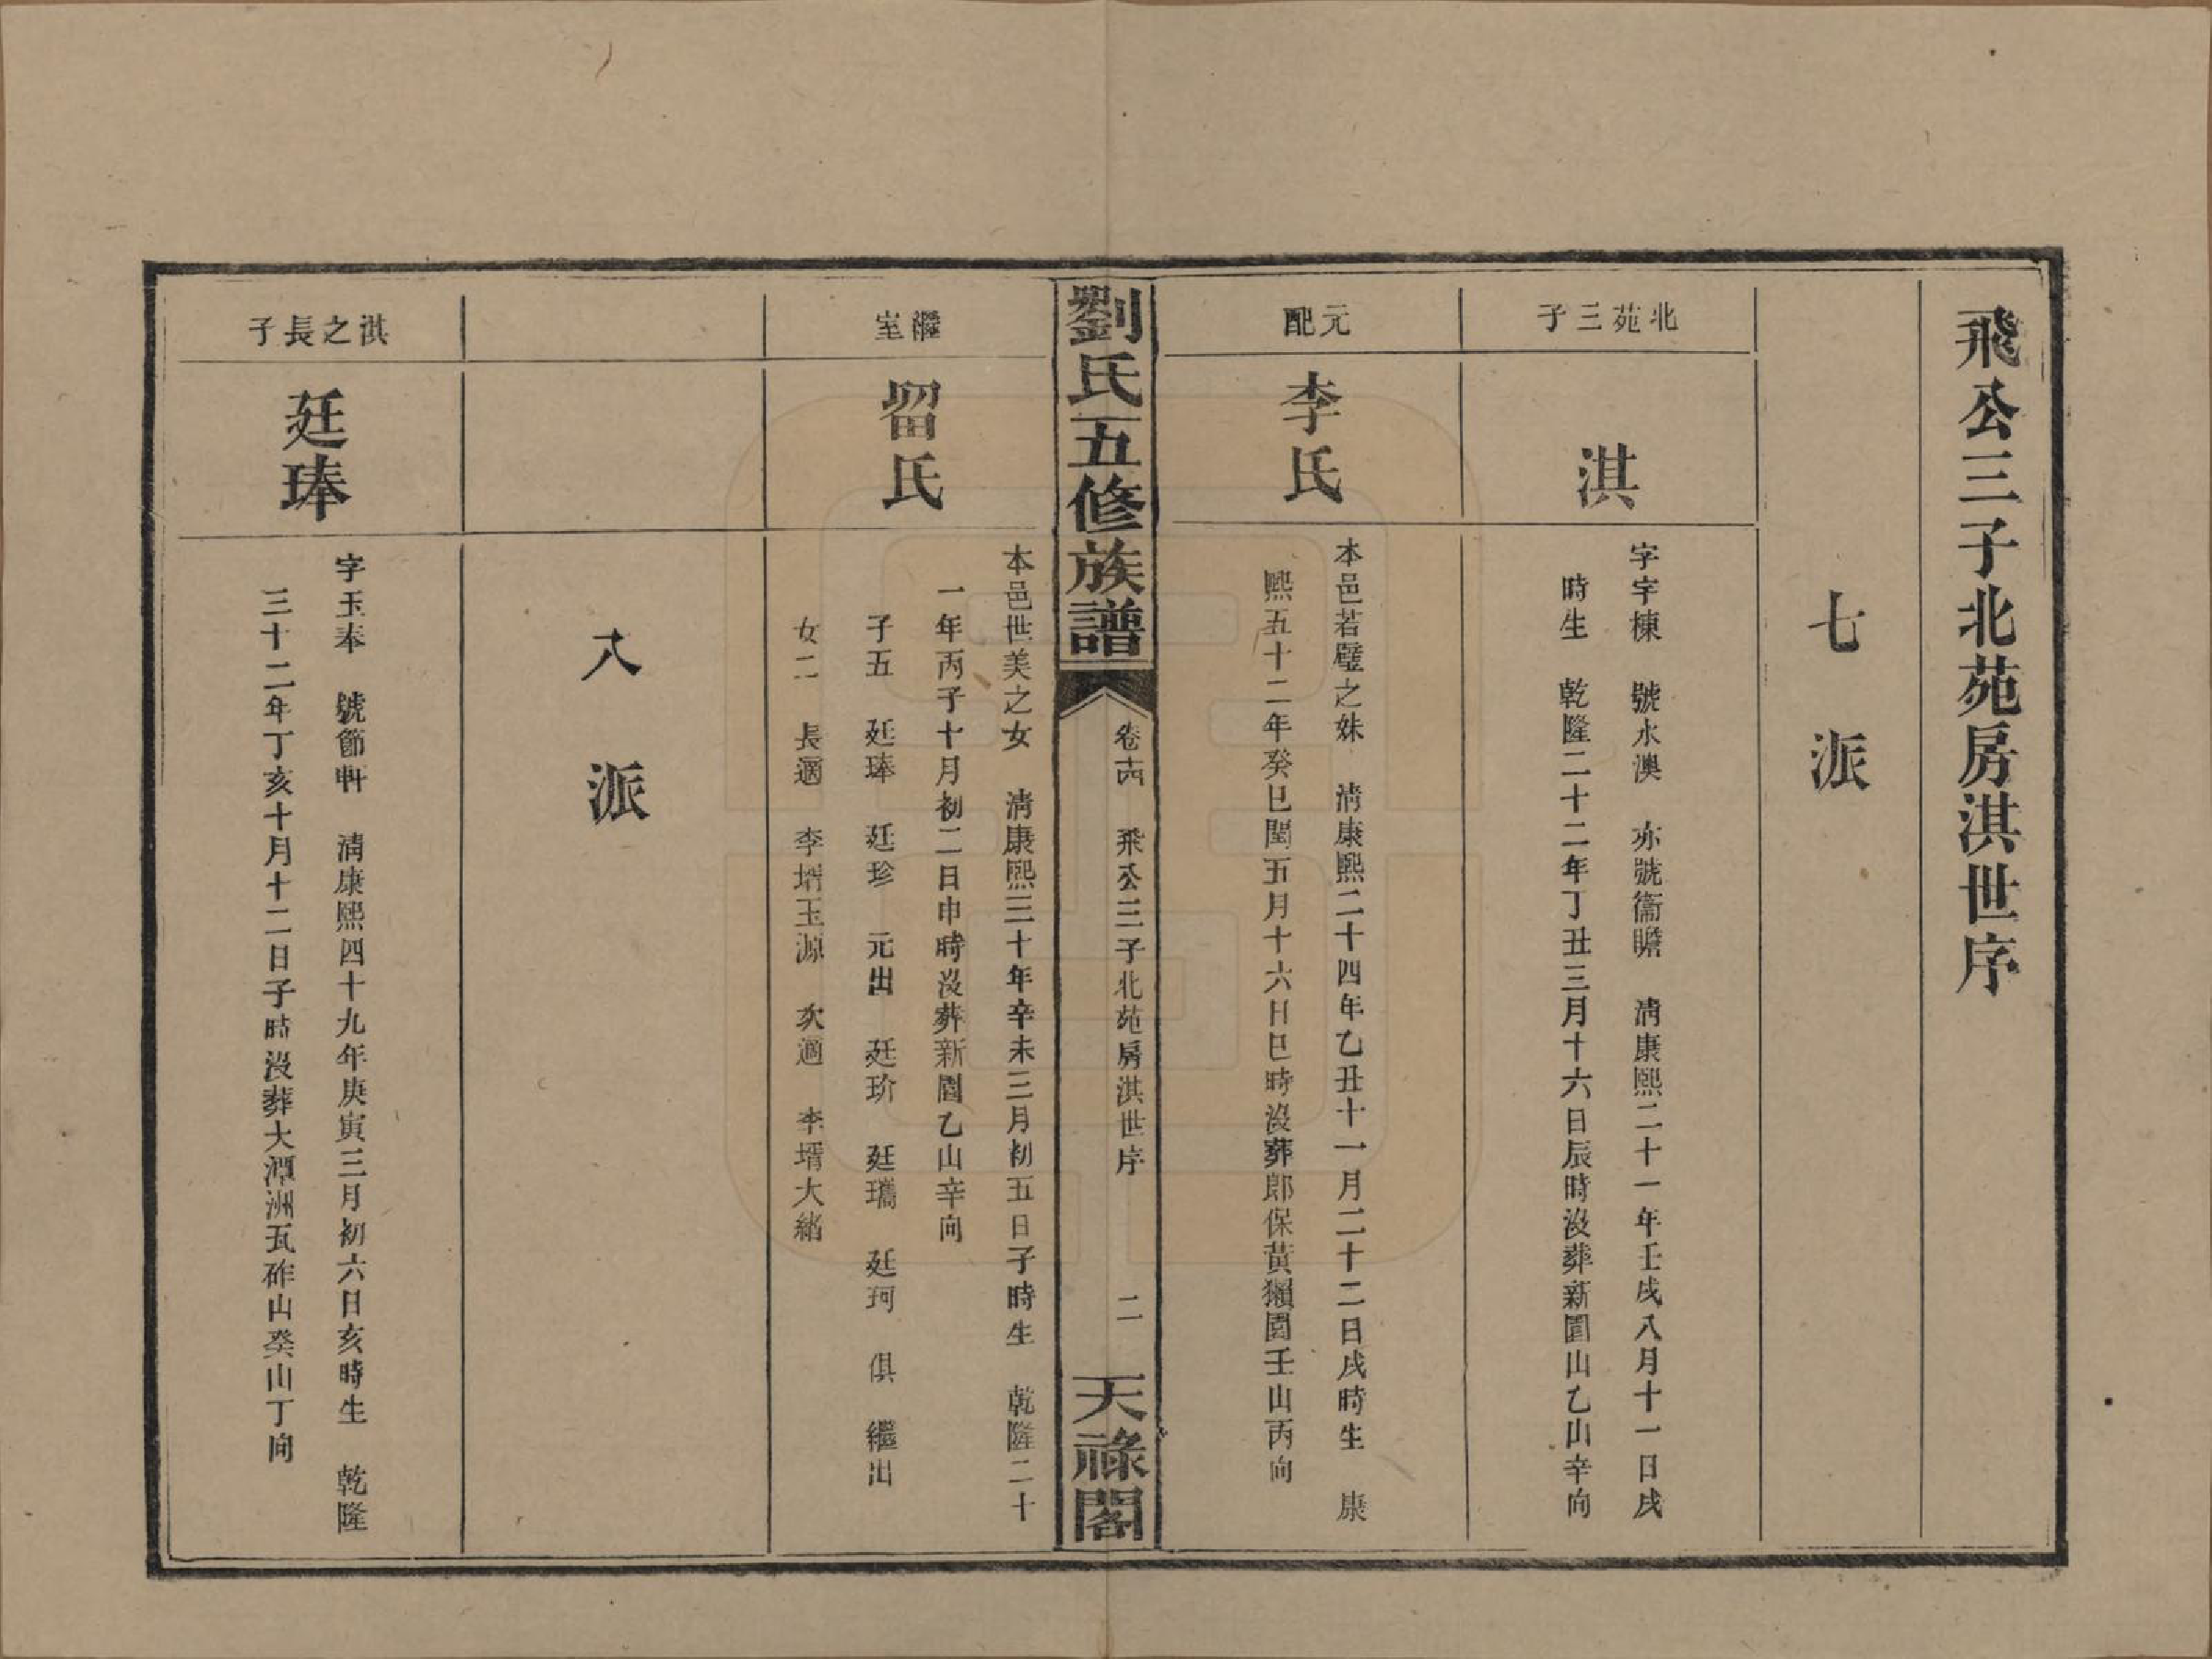 飛公三子北苑房淇世序
七派
北苑三子
淇
字字棟　號水澳　亦號衞瞻　淸康熙二十一年壬戌八月十一日戌
時生　乾隆二十二年丁丑三月十六日辰時沒葬新園山乙山辛向
元配
李氏
本邑若璧之妹　淸康熙二十四年乙丑十一月二十二日戌時生　康
熙五十二年癸巳閏五月十六日巳時沒葬郎保黃獺園壬山丙向
劉氏五修族譜
卷十四　飛公三子北苑房淇世序　二
天祿閣
繼室
留氏
本邑世美之女　淸康熙三十年辛未三月初五日子時生　乾隆二十
一年丙子十月初二日申時沒葬新園乙山辛向
子五　廷琫　廷珍　元出　廷玠　廷瓗　廷珂　俱　繼出
女二　長適　李壻玉源　次適　李壻大緒
八派
淇之長子
廷琫
字玉奉　號節軒　淸康熙四十九年庚寅三月初六日亥時生　乾隆
三十二年丁亥十月十二日子時沒葬大潭洲瓦砟山癸山丁向